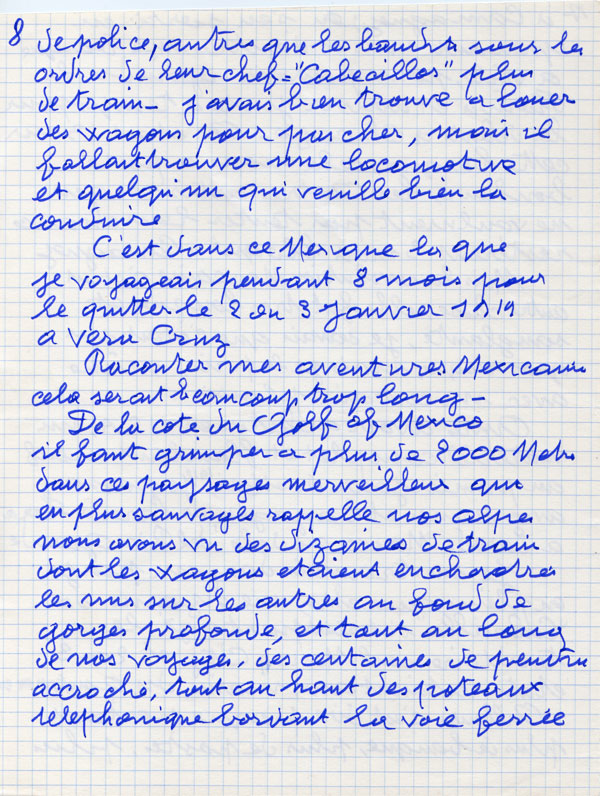 8 de police, autres que les bandits sous les
ordres de leur chef = "Cabecillos" plus
de train – j'avais bien trouvé a louer
des wagons pour pas cher, mais il
fallait trouver une locomotive
et quelqu'un qui veuille bien la
conduire
C'est dans ce Mexique la que
je voyageais pendant 8 mois pour
le quitter le 2 ou 3 Janvier 1919
a Vera Cruz
Raconter mes aventures Mexicaines
cela serait beaucoup trop long –
De la cote du Golf of Mexico
il faut grimper a plus de 2000 Metres
dans ces paysages merveilleux qui
en plus sauvages rappelle nos alpes
nous avons vu des dizaines de train
dont les wagons etaient enchevetrés
les uns sur les autres au fond de
gorges profonde, et tout au long
de nos voyages, des centaines de pendu
accroché, tout au haut des poteaux
telephonique bordant la voie ferrée